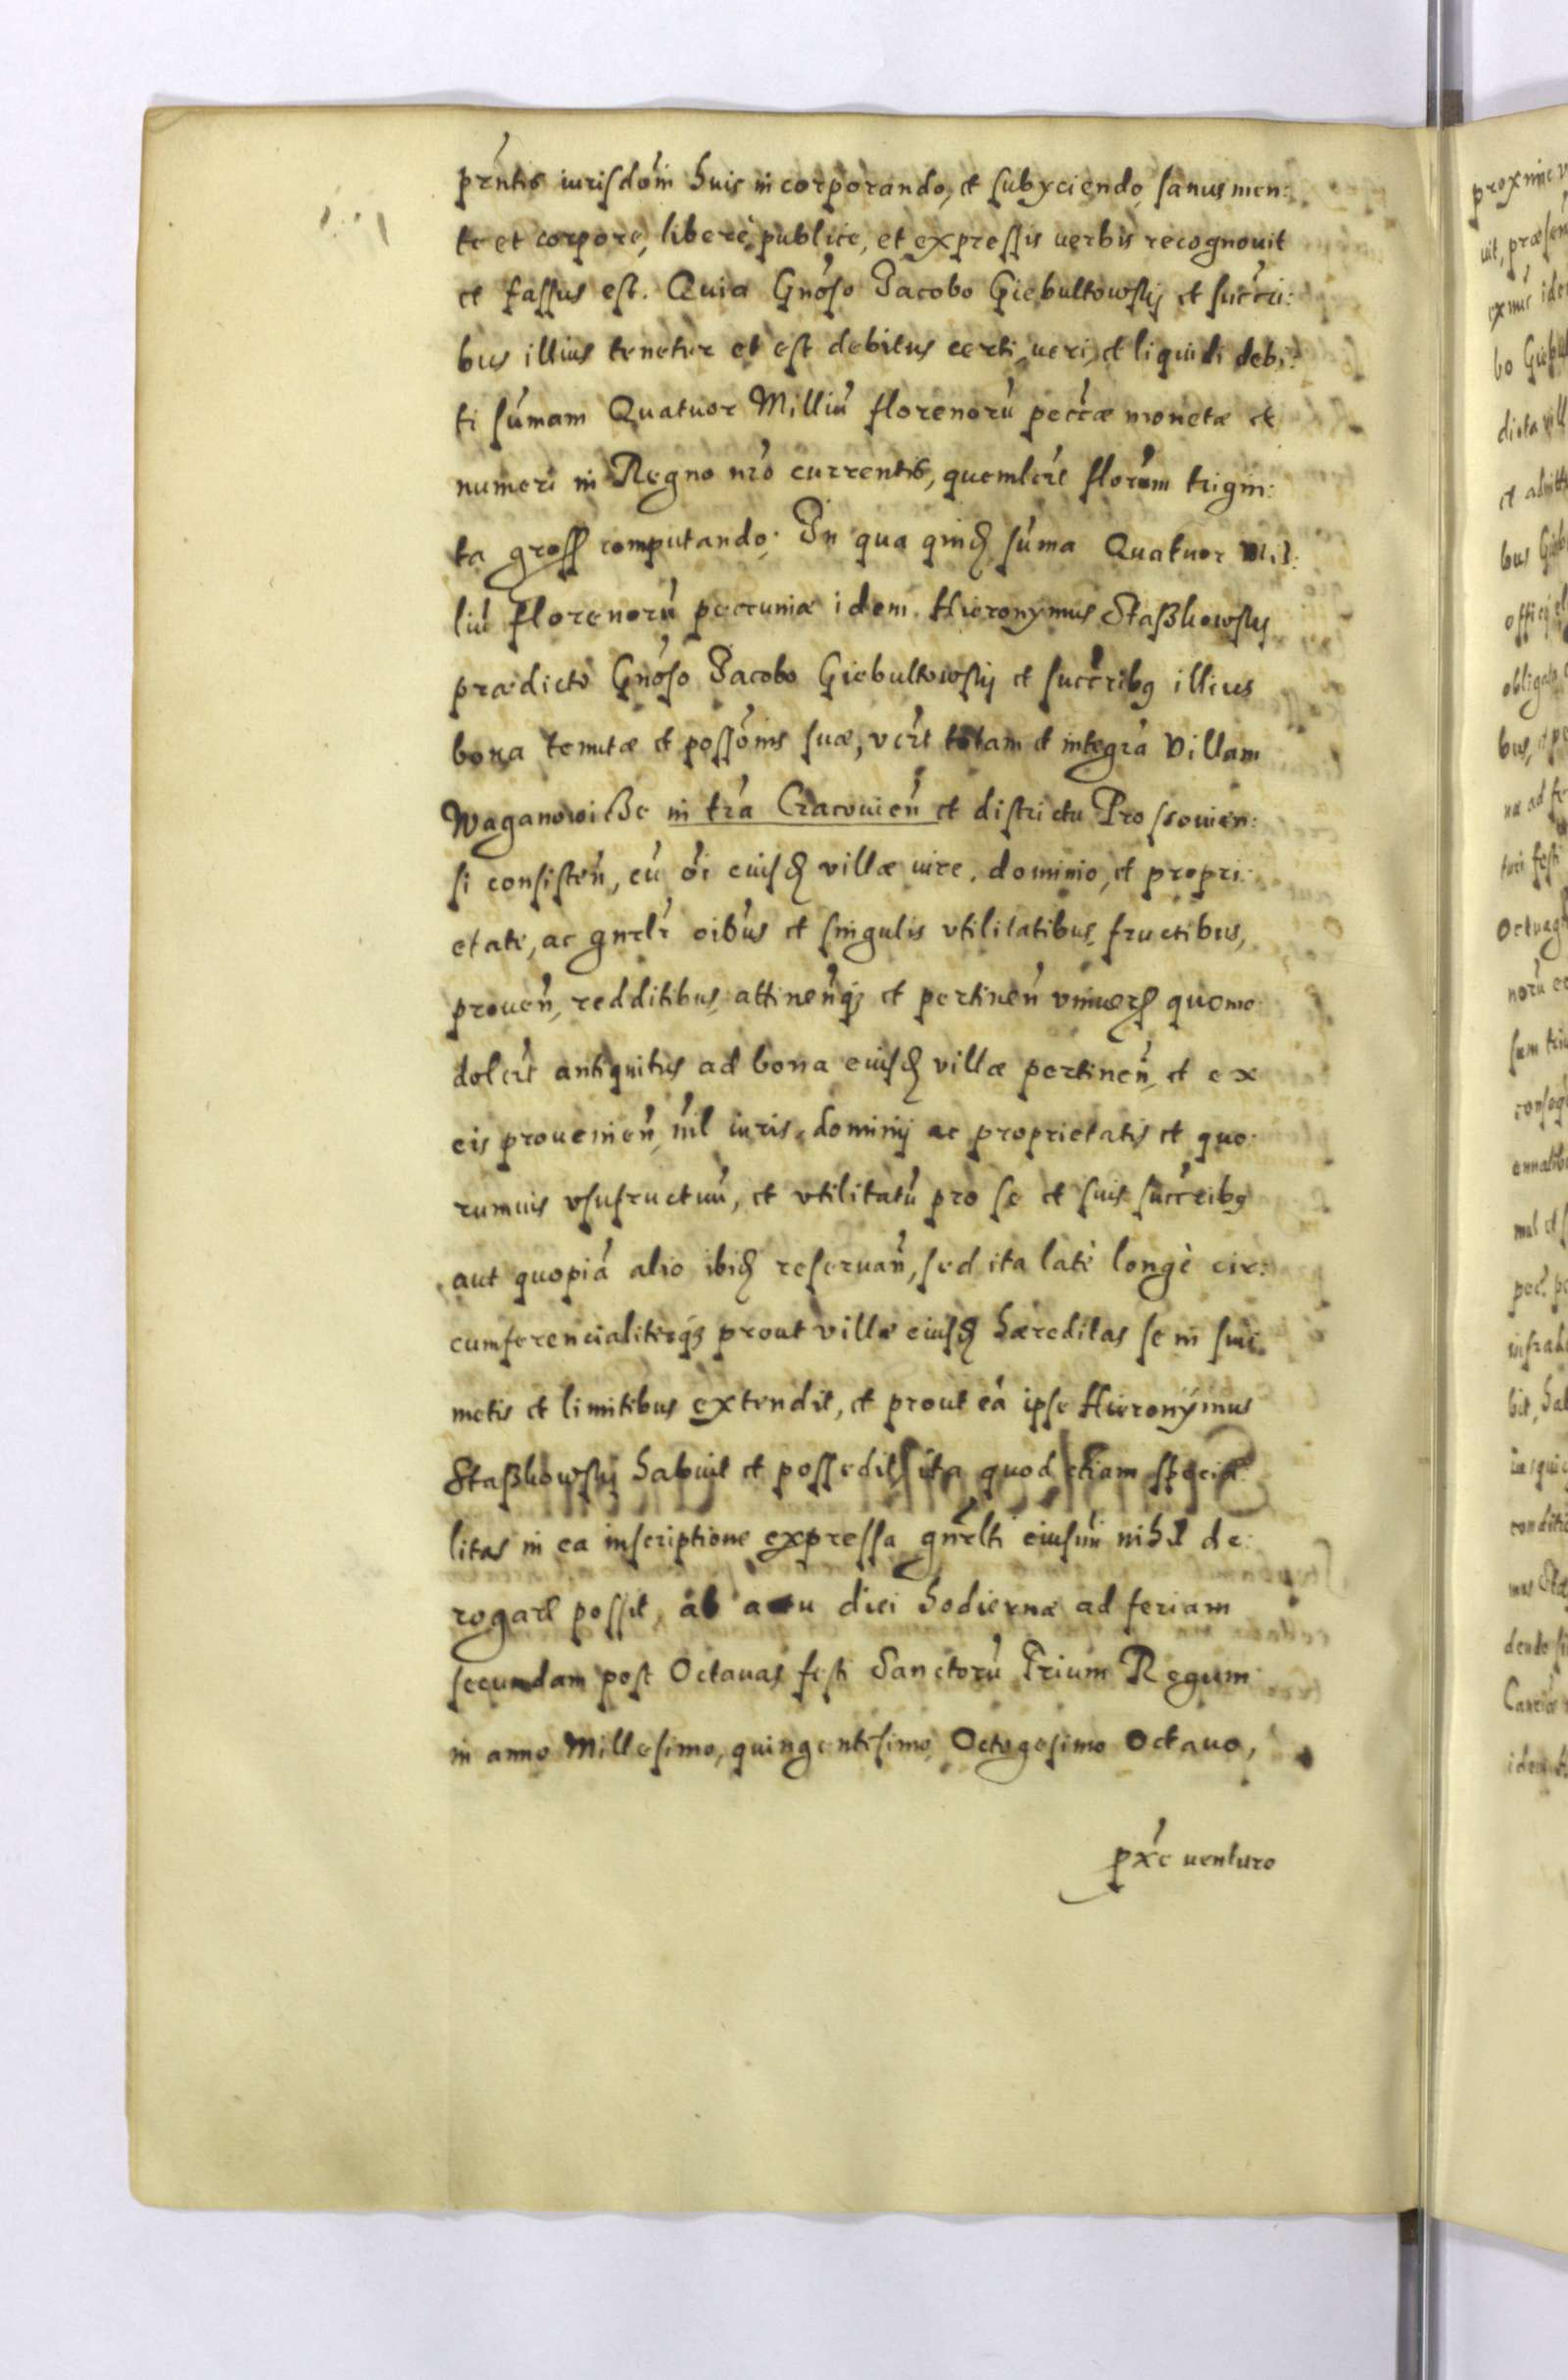 prntis iurisdoni huic incorporando, et subyciendo, sanus men:
te et corpore, liberè, publice, et expressis uerbis recognouit
et fassus est. Quia Gnoso Jacobo Giebultowskj et succri:
bus illius tenetur et est debitus certi, ueri, et liquidi debi:
ti sumam Quatuor Milliu florenoru peccæ monetæ et
numeri in Regno nro currentis, quemlert florum trigin:
ta gross computando. In qua quid suma Quatuor Mil:
liu florenoru peccuniæ idem Hieronymus Staßkowsky
prædicto Gnoso Jacobo Giebultowskj et succribq illius
bona tenutæ et possonis suæ, vert totam et integra Villam
Waganowiße in tra Cracouien et districtu Prossouien:
si consisten, cu oi eiusd villæ iure, dominio, et propri:
etate, ac gnrlr oibus et singulis vtilitatibus, fructibus,
prouen, redditibus, attinenq et pertinen vniuers quomo:
dolert antiquitus ad bona eiusd villæ pertinen, et ex
eis prouenien, nil iuris, dominij ac proprietatis et quo:
rumuis vsufructuu, et vtilitatu pro se et suis succribq
aut quopiá alio ibid reseruan, sed ita latè longè cir:
cumferencialiterq prout villæ eiusd hæreditas se in suis
metis et limitibus extendit, et prout ea ipse Hieronymus
Staßkowskj habuit et possedit ita quod etiam specia
litas in ea inscriptione expressa gnrlti eiusmi nihil de:
rogare possit, ab actu diei hodiernæ ad feriam
secundam post Octauas festi Sanctoru Trium Regum
in anno Millesimo, quingentesimo, Octogesimo Octauo,
pxe uenturo